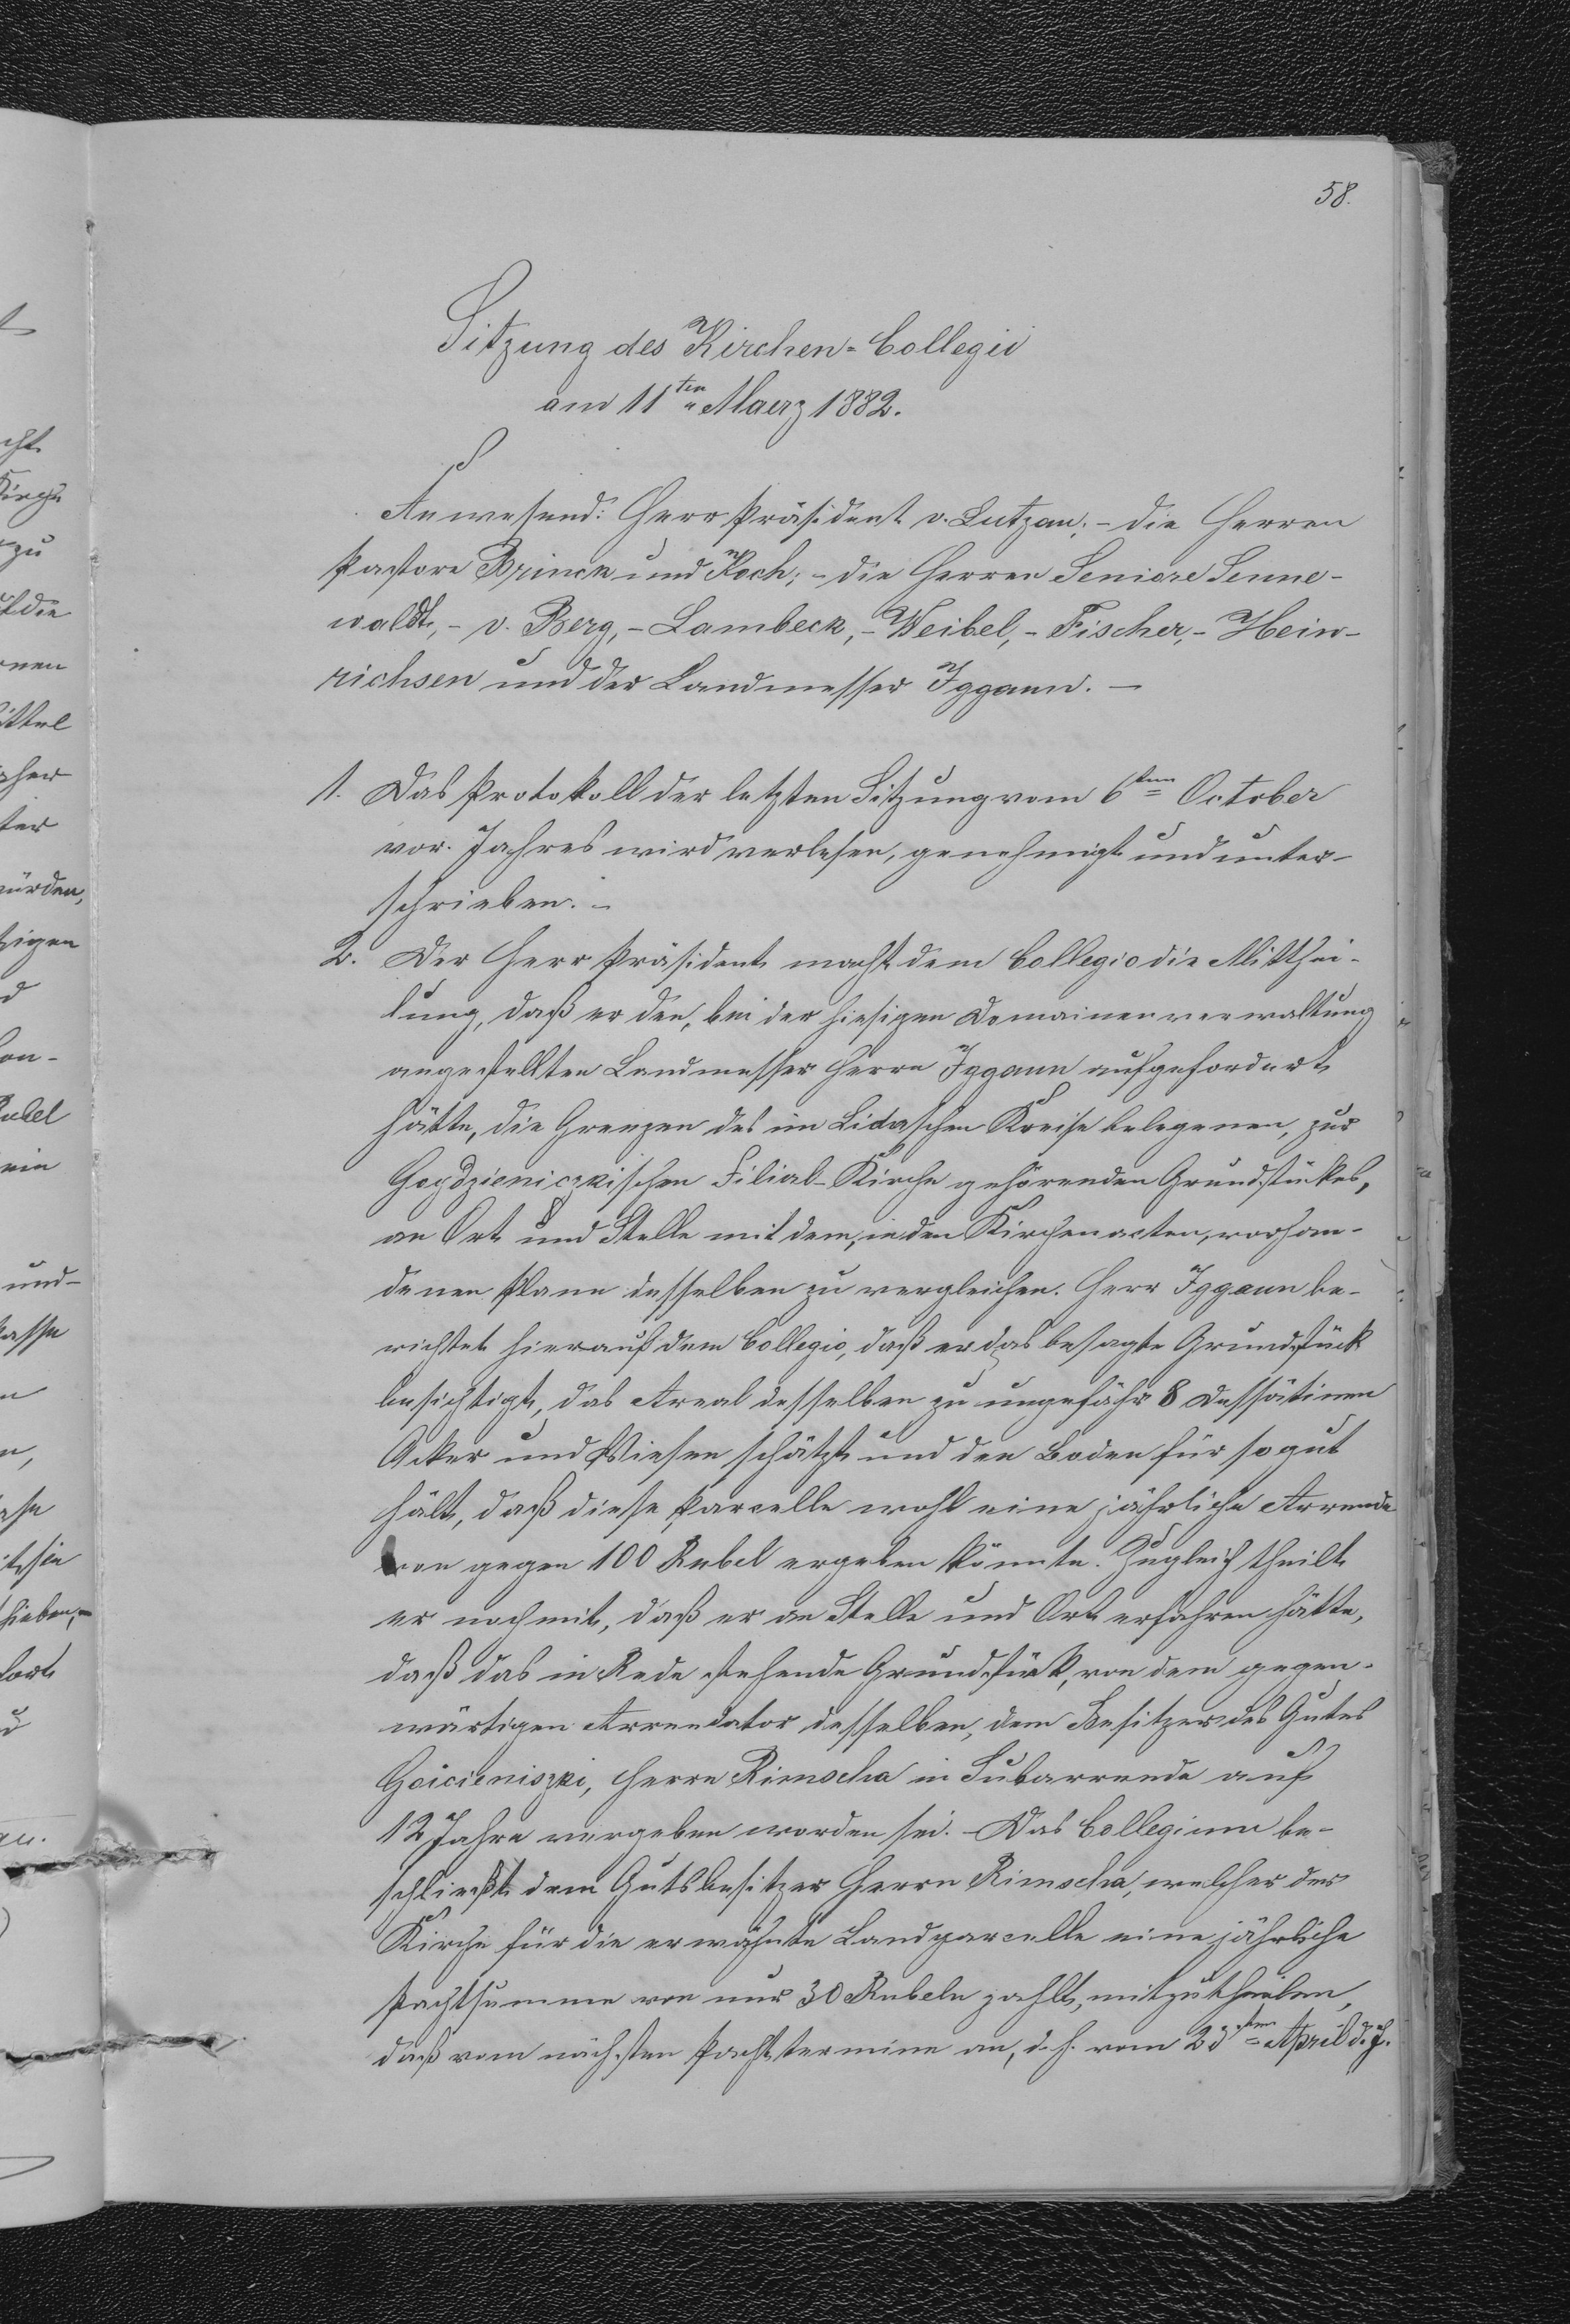 58.
Sitzung des Kirchen-Collegii
am 11ten Maerz 1882.
Anwesend: Herr Präsident v. Lutzau; - die Herren
Pastore Brinck und Koch; - die Herren Seniore Senne-
waldt, - v. Berg, - Lambeck, - Weibel, - Fischer, - Hein-
richsen und der Landmesser Iggaun. -
1. Das Protokoll der letzten Sitzung vom 6ten October
vor. Jahres wird verlesen, genehmigt und unter-
schrieben. -
2. Der Herr Präsident macht dem Collegio die Mitthei-
lung, daß er den, bei der hiesigen Domainenverwaltung
angestellten Landmesser Herrn Iggaun aufgefordert
hätte, die Grenzen des im Lidaschen Kreise belegenen, zur
Goydzieniczkischen Filial-Kirche gehörenden Grundstückes,
an Ort und Stelle mit dem, in den Kirchenacten, vorhan-
denen Plane desselben zu vergleichen. Herr Iggaun be-
richtet hierauf dem Collegio, daß er das besagte Grundstück
besichtigt, das Areal desselben zu ungefähr 8 Dessätinen
Acker und Wiesen schätzt und den Boden für so gut
hält, daß diese Parcelle wohl eine jährliche Arrende
von gegen 100 Rubel ergeben könnte. Zugleich theilt
er noch mit, daß er an Stelle und Ort erfahren hätte,
daß das in Rede stehende Grundstück, von dem gegen-
wärtigen Arrendator desselben, dem Besitzer des Gutes
Goicieniszki, Herrn Rimscha in Subarrende auf
12 Jahre vergeben worden sei. - Das Collegium be-
schließt dem Gutsbesitzer Herrn Rimscha, welcher der
Kirche für die erwähnte Landparcelle eine jährliche
Pachtsumme von nur 30 Rubeln zahlt, mitzutheilen,
daß vom nächsten Pachttermine an, d. h. vom 23sten April d. J.